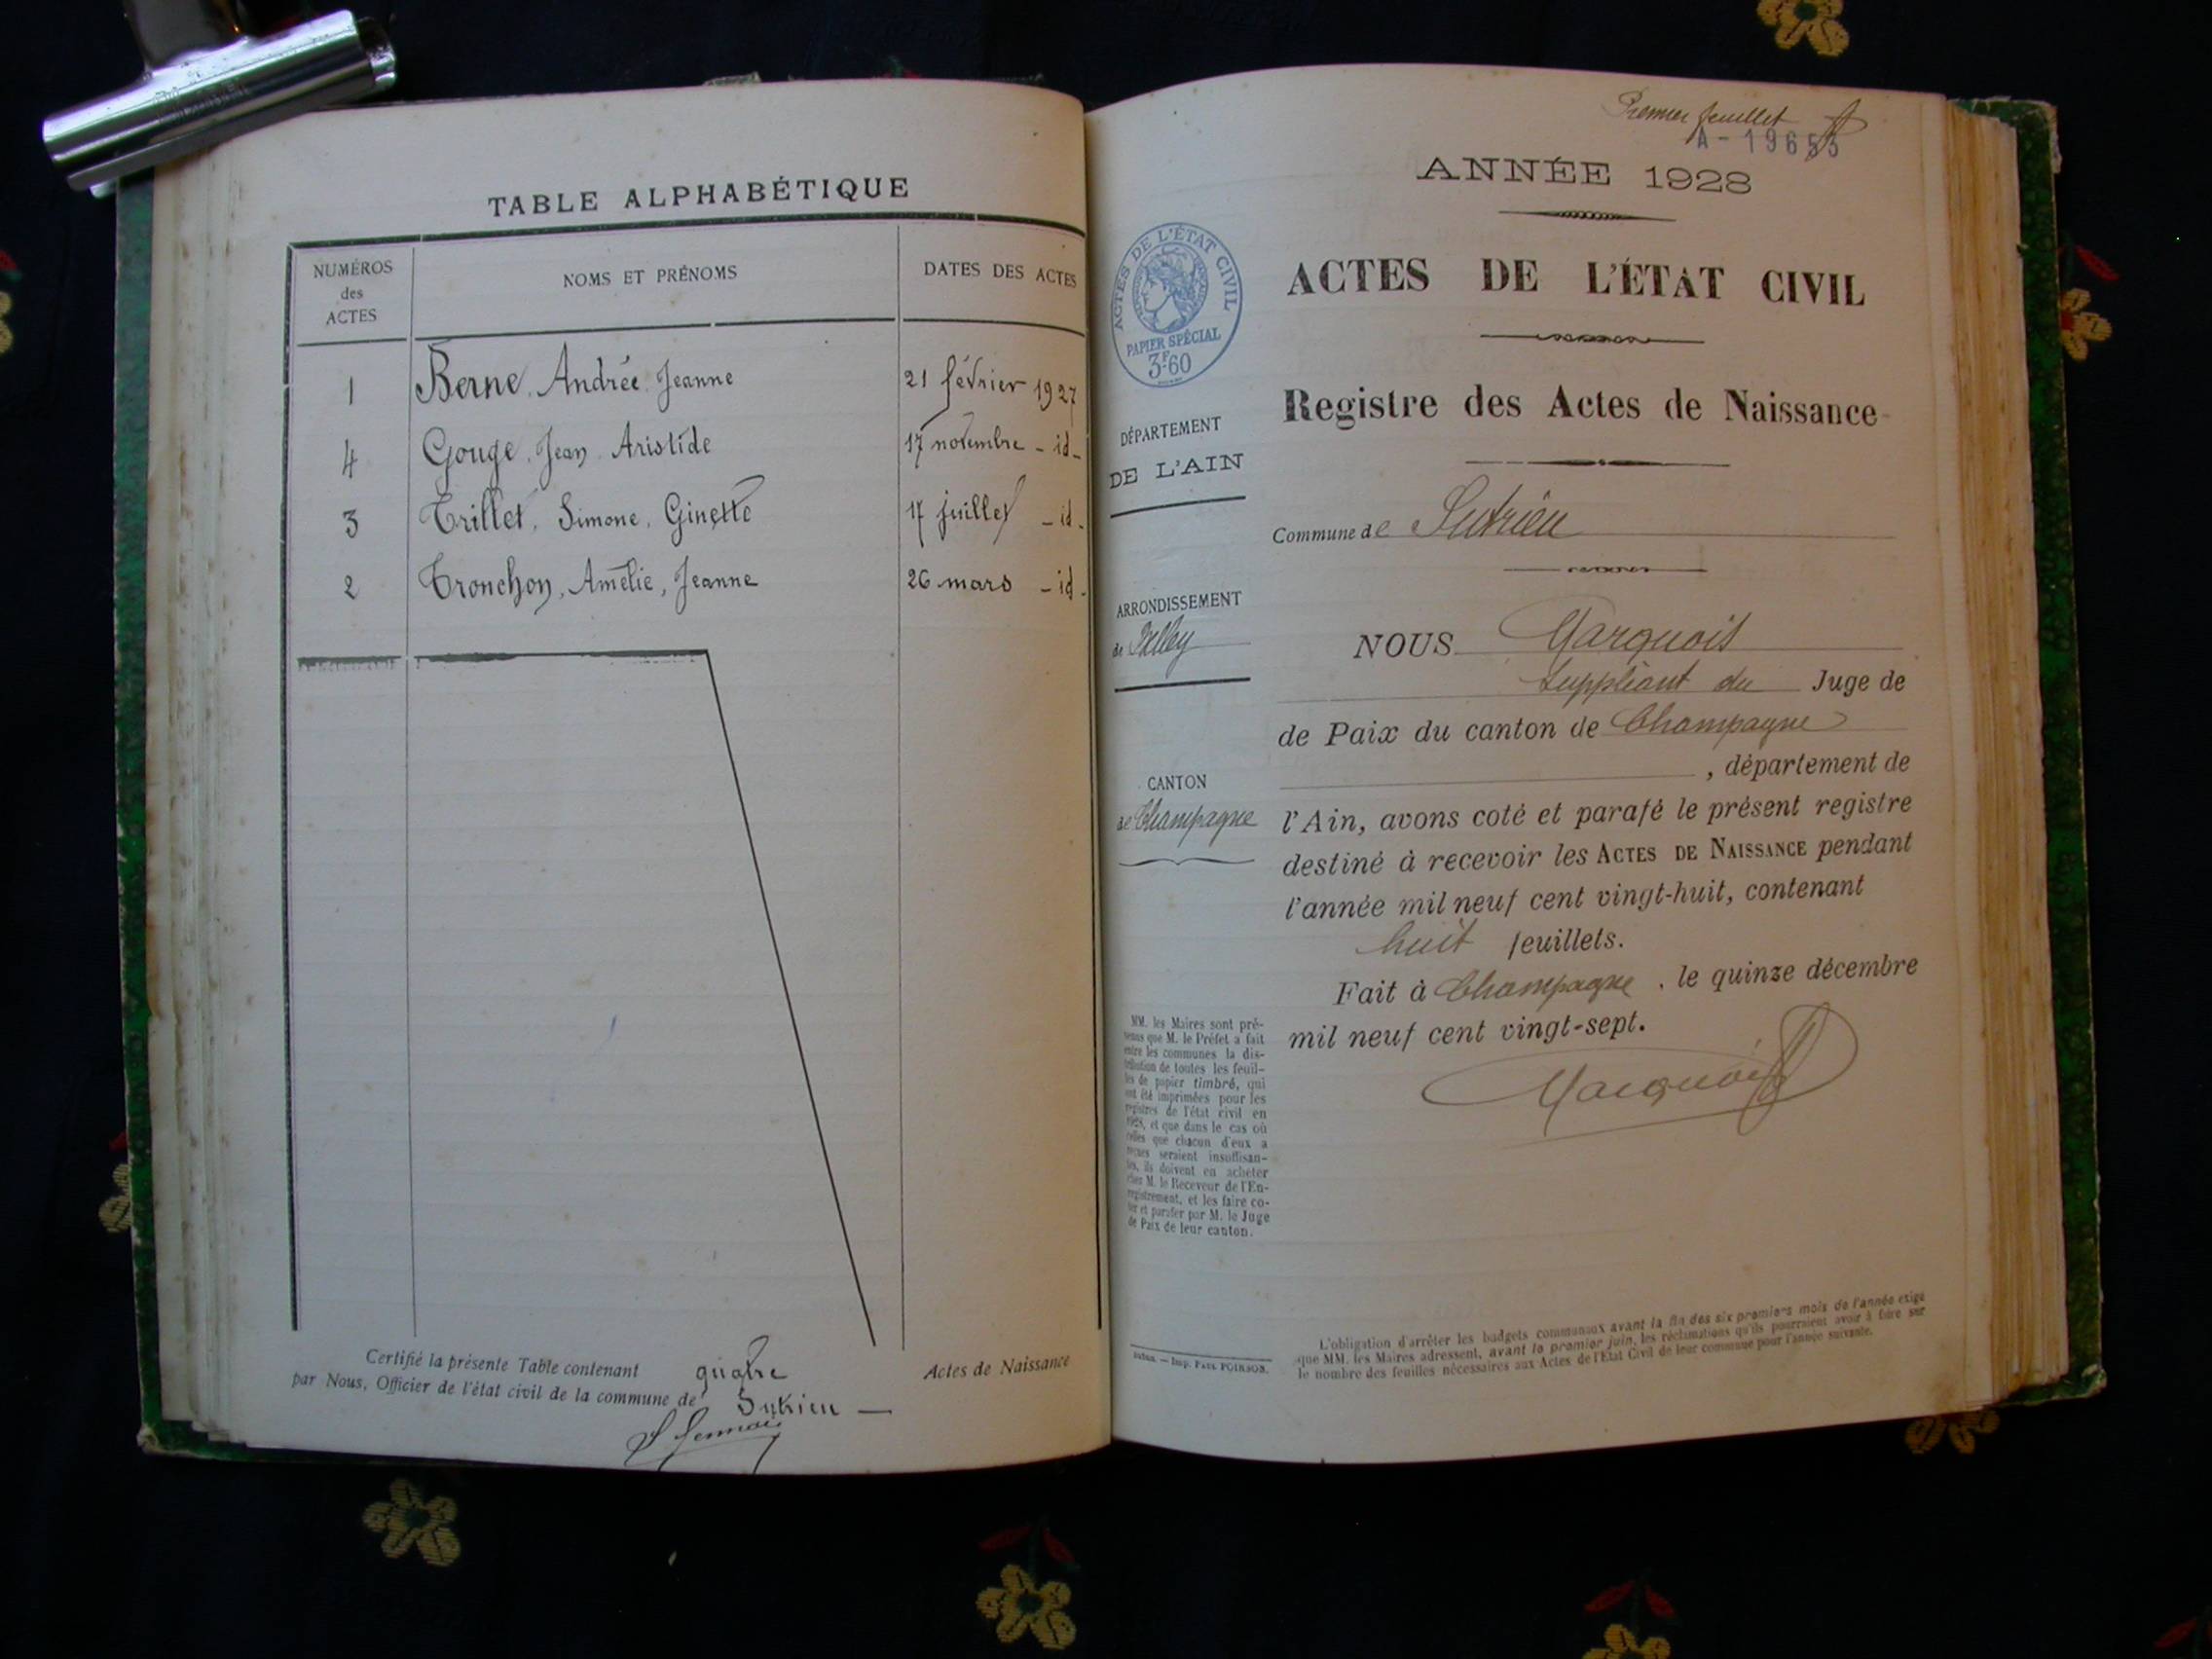 TABLE ALPHABÉTIQUE
NUMÉROS des ACTES
NOMS ET PRÉNOMS
DATES DES ACTES
1 Berne, Andrée Jeanne 21 février 1927
4 Gouge, Jean Aristide 17 novembre - id -
3 Trillet, Simone, Ginette 17 juillet - id -
2 Tronchon, Amélie, Jeanne 26 mars - id -
Certifié la présente Table contenant quatre Actes de Naissance
par Nous, Officier de l'état civil de la commune de Sutrieu —
Premier feuillet
A-19653
ANNÉE 1928
ACTES DE L'ÉTAT CIVIL
Registre des Actes de Naissance
Commune de Sutrieu
NOUS Marquois
suppléant du Juge de
de Paix du canton de Champagne
, département de
l'Ain, avons coté et parafé le présent registre
destiné à recevoir les ACTES DE NAISSANCE pendant
l'année mil neuf cent vingt-huit, contenant
huit feuillets.
Fait à Champagne, le quinze décembre
mil neuf cent vingt-sept.
Marquois
ACTES DE L'ÉTAT CIVIL
PAPIER SPÉCIAL
3F60
DÉPARTEMENT
DE L'AIN
ARRONDISSEMENT
de Belley
CANTON
de Champagne
MM. les Maires sont pré-
venus que M. le Préfet a fait
entre les communes la dis-
tribution de toutes les feuil-
les de papier timbré, qui
ont été imprimées pour les
registres de l'état civil en
1928, et que dans le cas où
celles que chacun d'eux a
reçues seraient insuffisan-
tes, ils doivent en acheter
chez M. le Receveur de l'En-
registrement, et les faire co-
ter et parafer par M. le Juge
de Paix de leur canton.
Imp. PAUL POIRSON.
L'obligation d'arrêter les budgets communaux avant la fin des six premiers mois de l'année exige
que MM. les Maires adressent, avant le premier juin, les réclamations qu'ils pourraient avoir à faire sur
le nombre des feuilles nécessaires aux Actes de l'État Civil de leur commune pour l'année suivante.